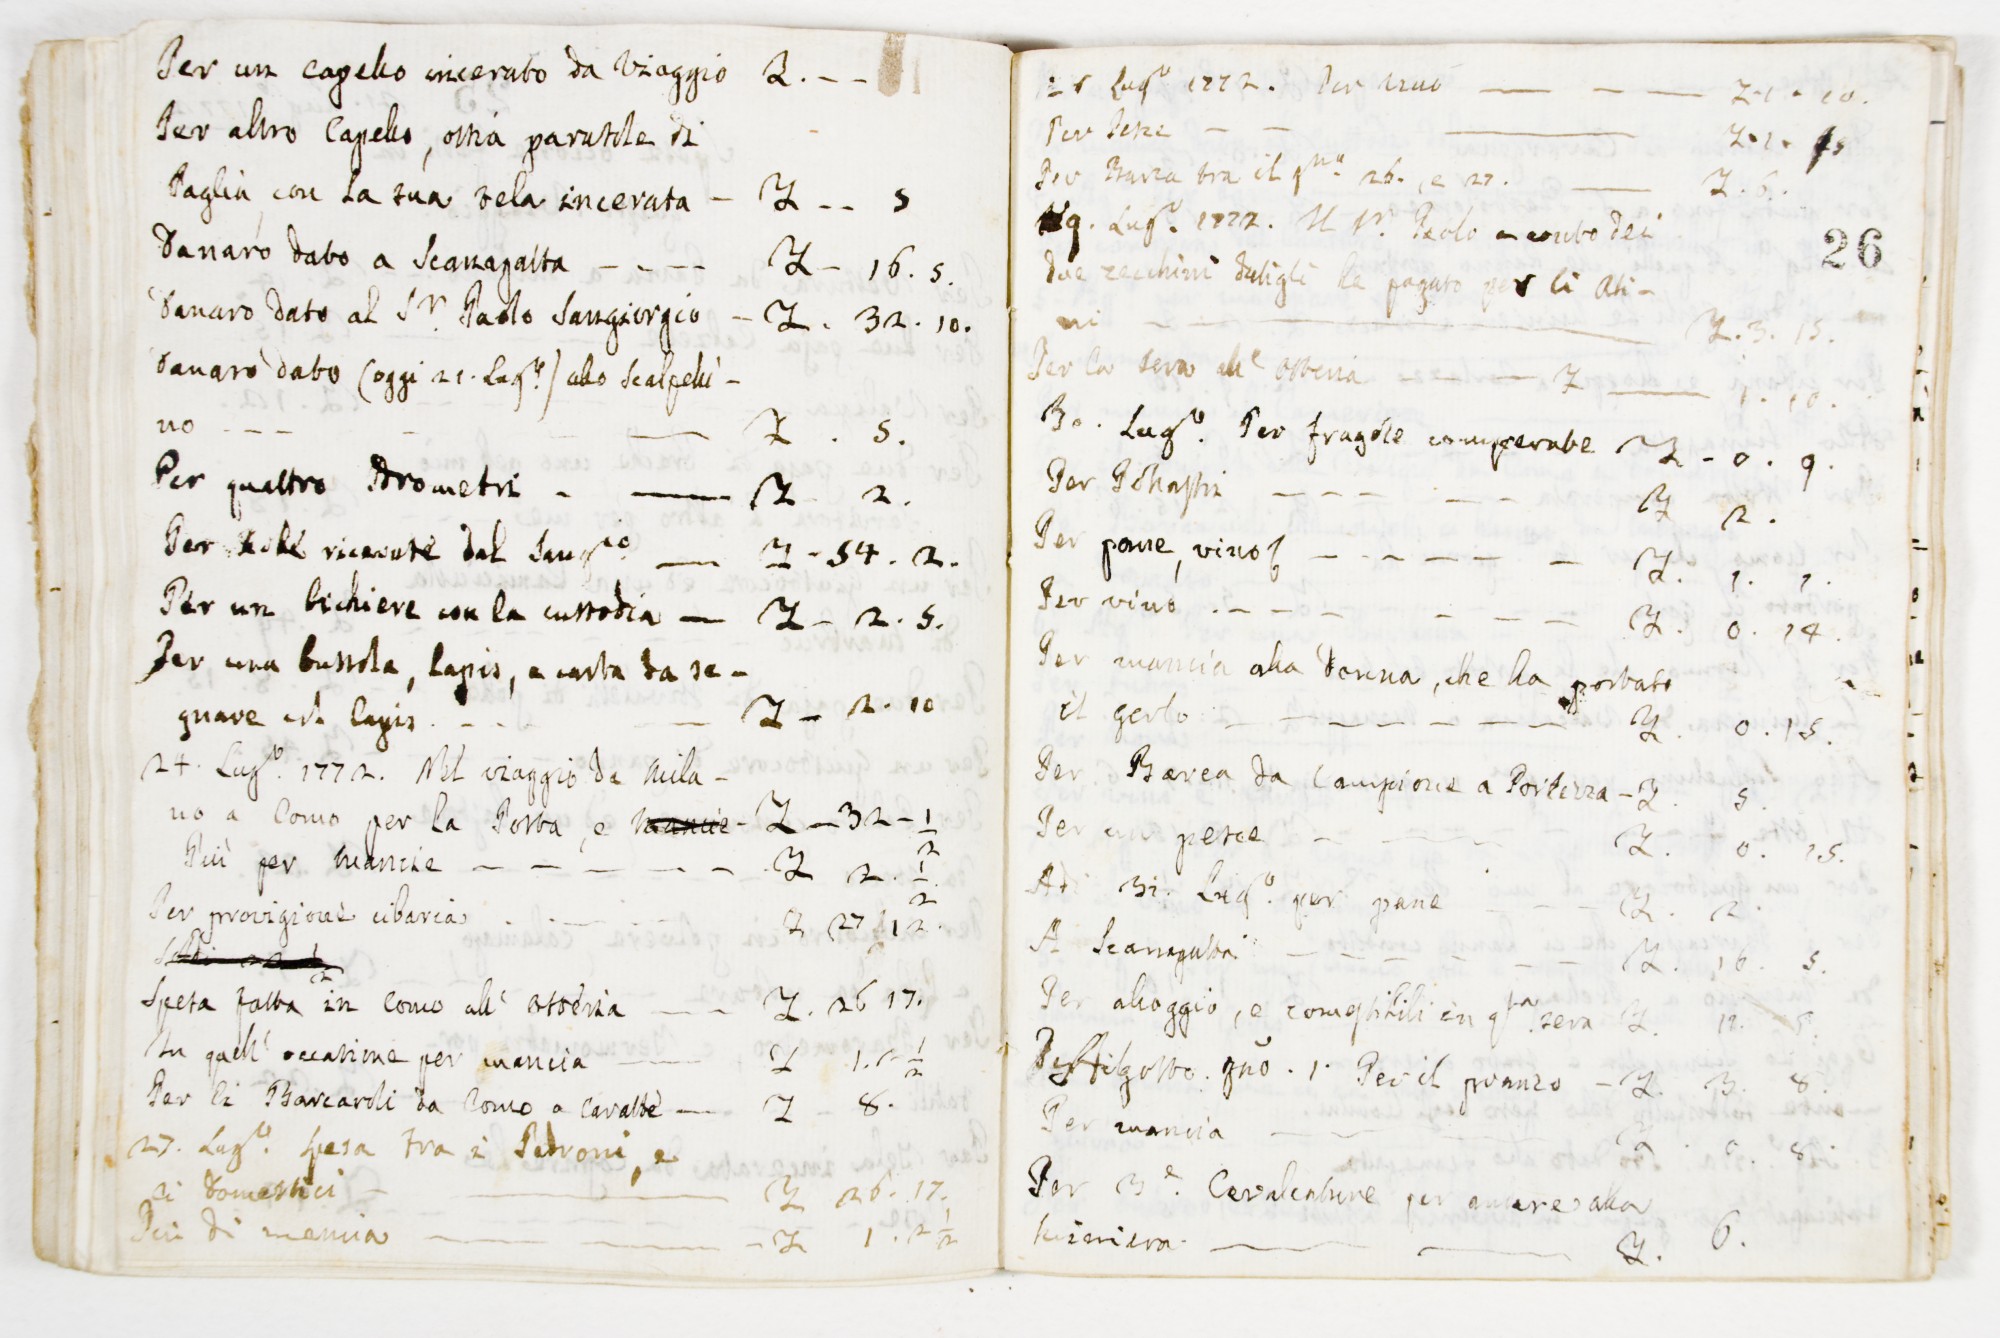 Per un capello incerato da Viaggio Z. - -
Per altro Capello, ossia parasole di
Paglia, con la sua tela incerata - Z -- 5
Danaro dato a Scanagatta ---- Z - 16. 5.
Danaro dato al Sr. Paolo Sangiorgio - Z. 32. 10.
Danaro dato (oggi 21. Lugo.) allo Scalpelli-
no --- - — Z . 5.
Per quattro Idrometri - — Z - 2.
Per ricevute dal — Z - 54. 2.
Per un bichiere con la custodia — Z - 2. 5.
Per una bussola, lapis, e carta da se-
gnare col lapis. - - - — Z - 2. 10
24. Lugo. 1772. Nel viaggio da Mila-
no a Como per la Posta, e mancie - Z - 32 - 1/2
Più per mancie - - - - - - - Z 2. 1/2
Per provigione cibaria . - - - - Z 27 12.
Spesa fatta in Como all' osteria - - - Z. 26 17.
In quell' occasione per mancia — Z 1. 1/2
Per li Barcaroli da Como a — Z 8.
27. Lugo. Spesa tra i Padroni, e
li Domestici - — Z 26. 17.
Più di mancia — — - Z 1. 2 1/2
Lugo 1772. Per — - — Z. 1. 10.
Per - - — Z. 1. 15
Per Barca tra il 26., e 27. — Z. 6.
26
29. Lugo. 1772. Il Sr. Paolo a conto dei
due zecchini datigli ha pagato per li Asi-
ni - — Z. 3. 15.
Per la sera all' osteria — Z — 1. 10.
30. Lugo. Per fragole comperate Z - 0. 9.
Per --- . - - - Z 2.
Per pane, vino - - - - - - Z. 1. 1.
Per vino . - - - - - - - - Z. 0. 14.
Per mancia alla Donna, che ha portato
il gerlo - - - - - - - - Z. 0. 15.
Per Barca da Campione a Porlezza - Z. 5.
Per un pesce - - - - Z. 0. 15.
Adì 31. Lugo. per pane - - - Z. 2.
A Scanagatta - - - - - - - Z. 16. 5.
Per alloggio, e comestibili in qta. sera Z. 12. 5.
1. Per il pranzo - Z. 3. 8.
Per mancia — Z. 0. 8.
Per 3e. Cavalcature per andare alla
Miniera - — Z. 6.